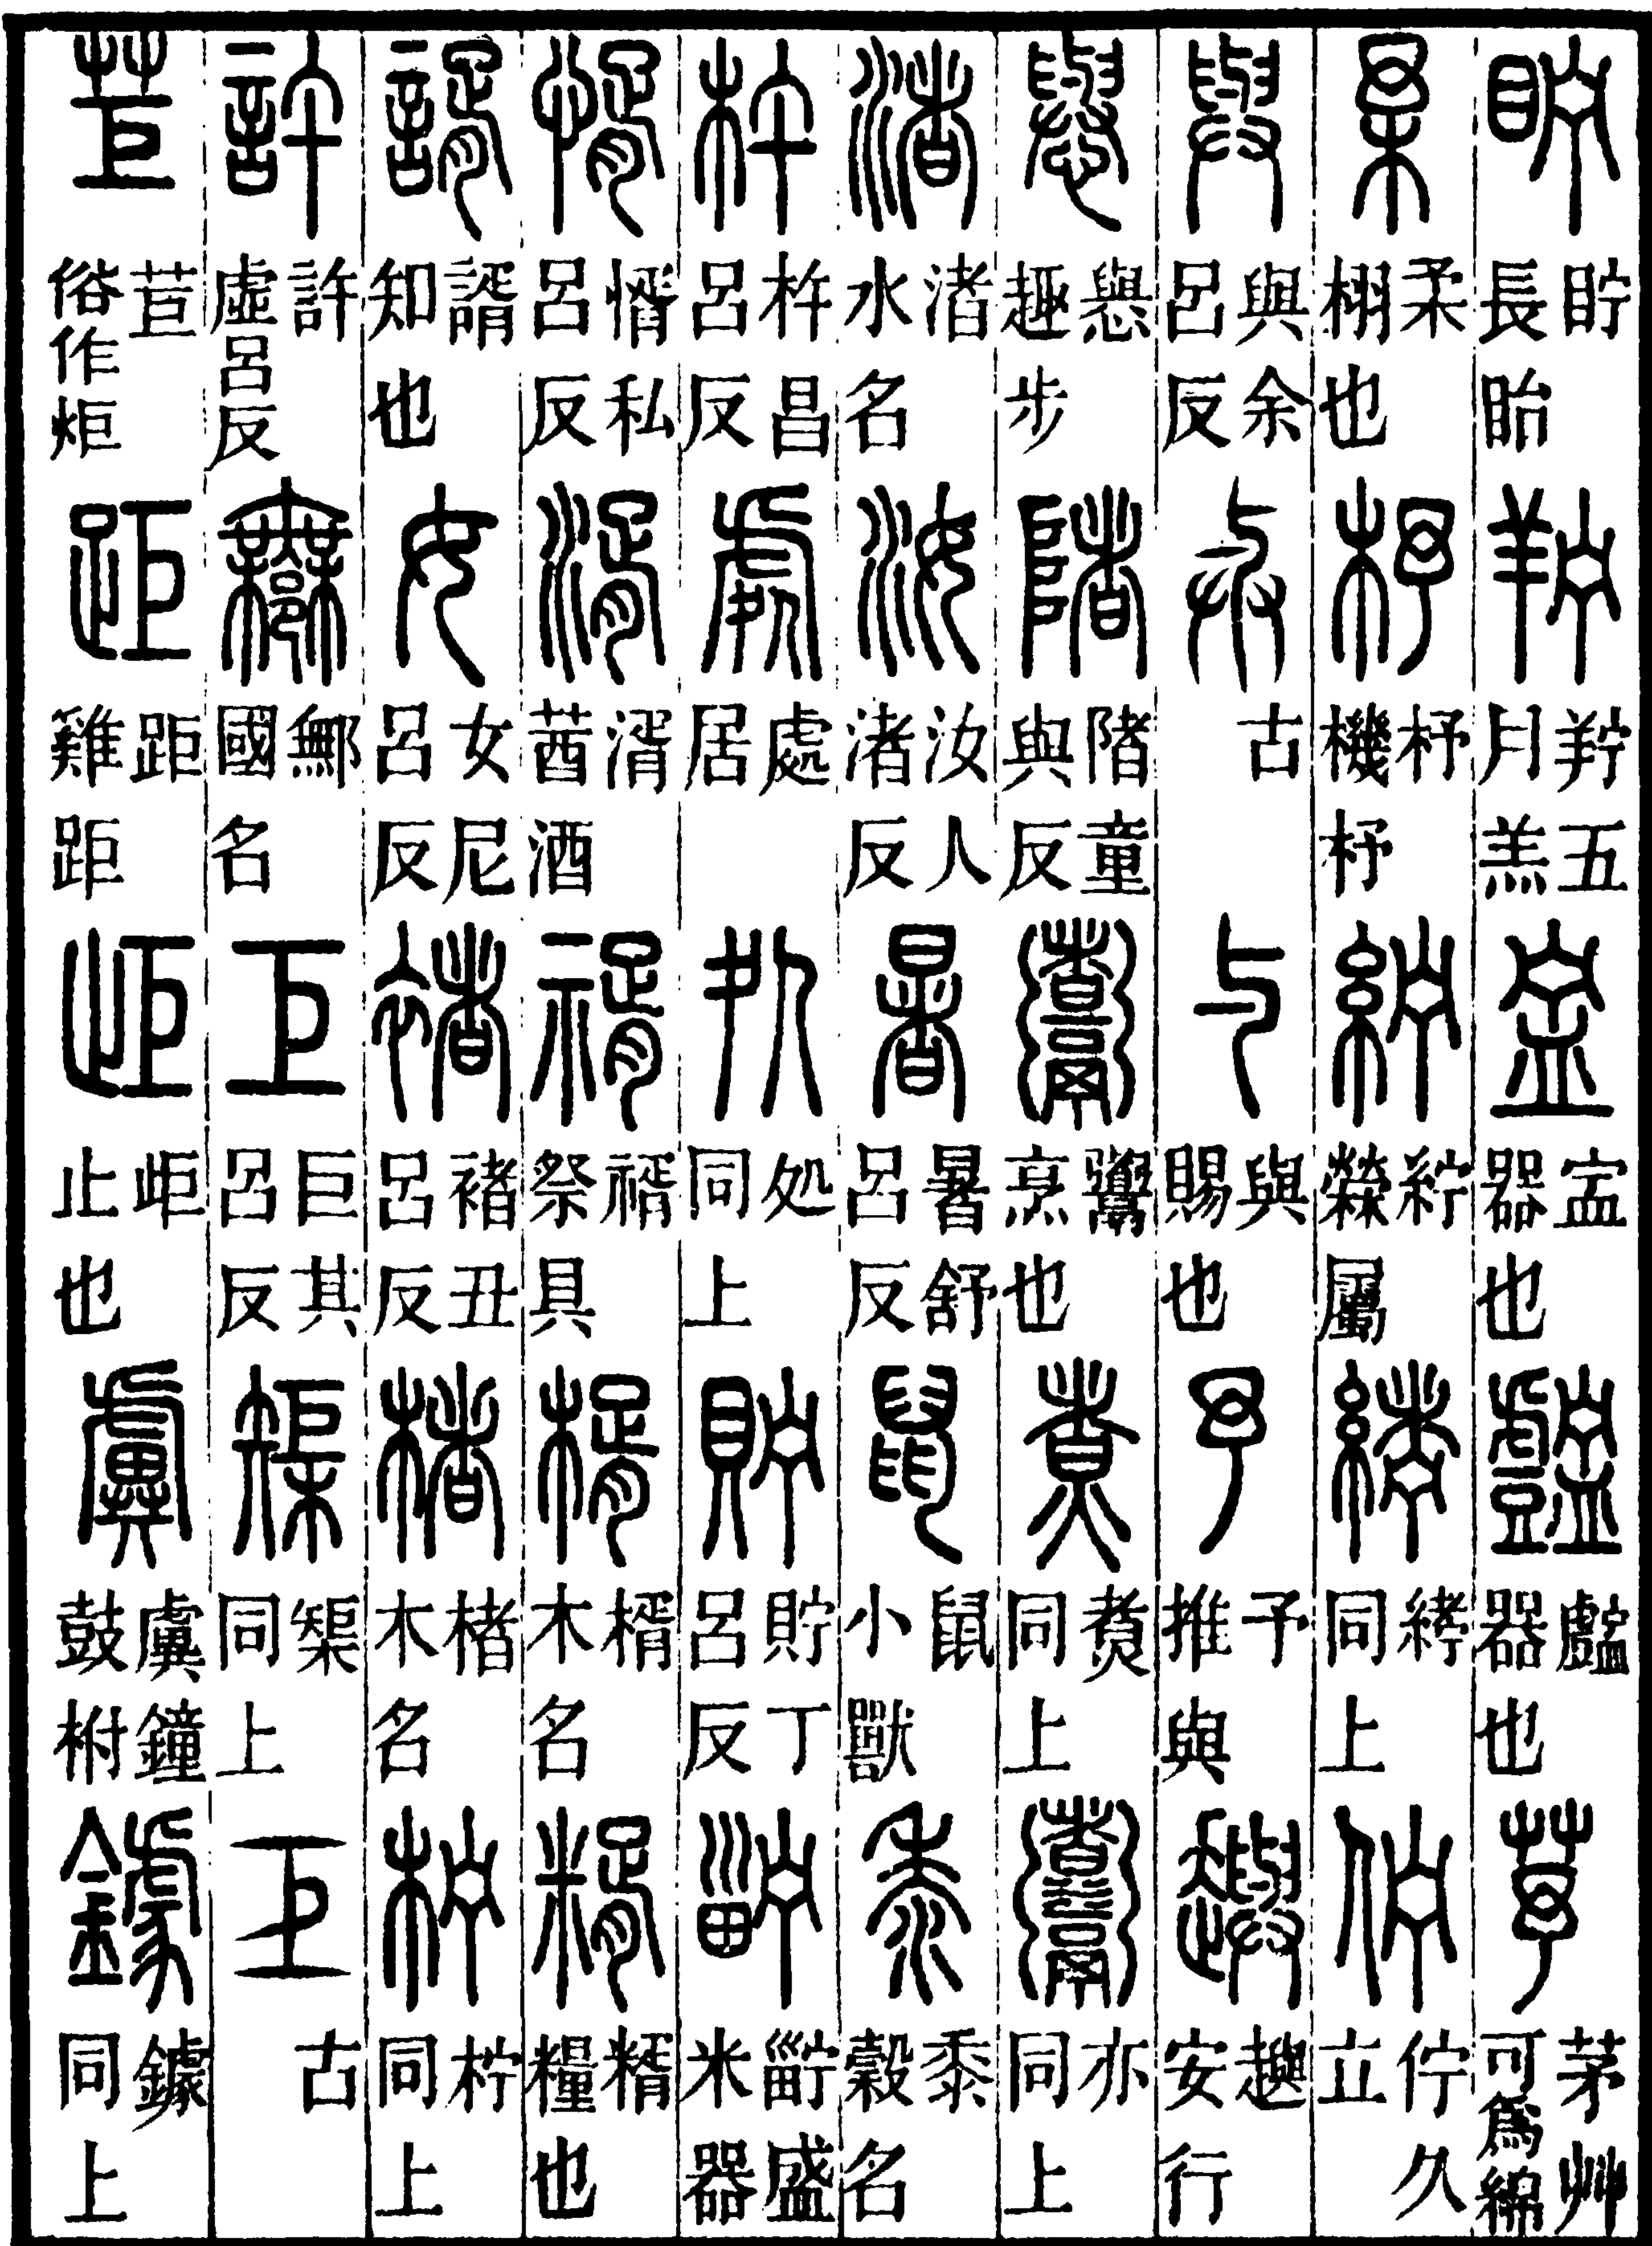 眝眝長眙羜羜五月羔器也器也芧茅艸可爲綿
柔柔栩也杼杼機杼紵紵縈屬緒同上佇佇久立
與與余呂反古与與賜也予予推與安行
㦛㦛趣步陼陼童與反烹也煑煑同上亦同上
渚渚水名汝汝人渚反暑暑舒呂反鼠鼠小獸黍黍穀名
杵杵昌呂反處處居処処同上貯貯丁呂反盛米器
㥠㥠私呂反湑湑莤酒祭具楈楈木名糈糈糧也
諝諝知也女女尼呂反褚褚丑呂反楮楮木名柠柠同上
許許虛呂反鄦鄦國名巨巨其呂反榘榘同上古
苣苣俗作炬距距雞距歫歫止也虡虡鐘鼓柎鐻鐻同上